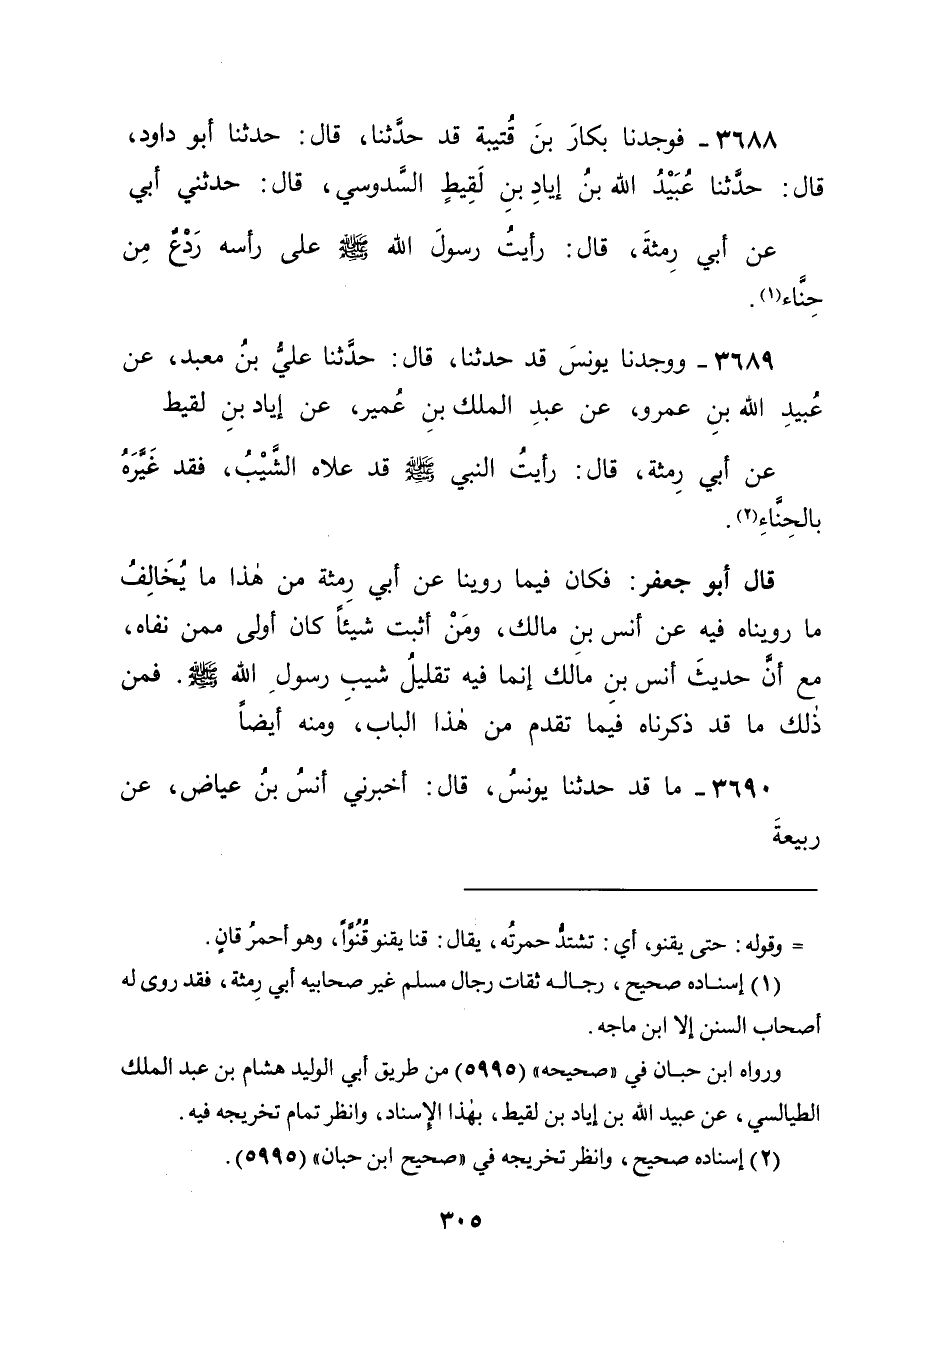 ٣٦٨٨ ـ فوجدنا بكارَ بنَ قُتيبة قد حدَّثنا، قال: حدثنا أبو داود،
قال: حدَّثنا عُبَيْدُ الله بنُ إيادِ بنِ لَقِيطٍ السَّدوسي، قال: حدثني أبي
عن أبي رِمثةَ، قال: رأيتُ رسولَ الله ﷺ على رأسه رَدْعٌ مِن
حِنَّاء(١).
٣٦٨٩ ـ ووجدنا يونسَ قد حدثنا، قال: حدَّثنا عليُّ بنُ معبد، عن
عُبيدِ الله بنِ عمرو، عن عبدِ الملك بنِ عُمير، عن إيادِ بنِ لقيط
عن أبي رِمثة، قال: رأيتُ النبي ﷺ قد علاه الشَّيْبُ، فقد غَيَّرَهُ
بالحِنَّاءِ(٢).
قال أبو جعفر: فكان فيما روينا عن أبي رِمثة من هٰذا ما يُخَالِفُ
ما رويناه فيه عن أنس بنِ مالك، ومَنْ أثبت شيئاً كان أولى ممن نفاه،
مع أنَّ حديثَ أنس بنِ مالك إنما فيه تقليلُ شيبِ رسولِ الله ﷺ. فمن
ذٰلك ما قد ذكرناه فيما تقدم من هٰذا الباب، ومنه أيضاً
٣٦٩٠ ـ ما قد حدثنا يونسُ، قال: أخبرني أنسُ بنُ عياض، عن
ربيعةَ
= وقوله: حتى يقنو، أي: تشتدُّ حمرتُه، يقال: قنا يقنو قُنُوّاً، وهو أحمرُ قانٍ.
(١) إسناده صحيح، رجاله ثقات رجال مسلم غير صحابيه أبي رِمثة، فقد روى له
أصحاب السنن إلا ابن ماجه.
ورواه ابن حبان في «صحيحه» (٥٩٩٥) من طريق أبي الوليد هشام بن عبد الملك
الطيالسي، عن عبيد الله بن إياد بن لقيط، بهٰذا الإسناد، وانظر تمام تخريجه فيه.
(٢) إسناده صحيح، وانظر تخريجه في «صحيح ابن حبان» (٥٩٩٥).
٣٠٥